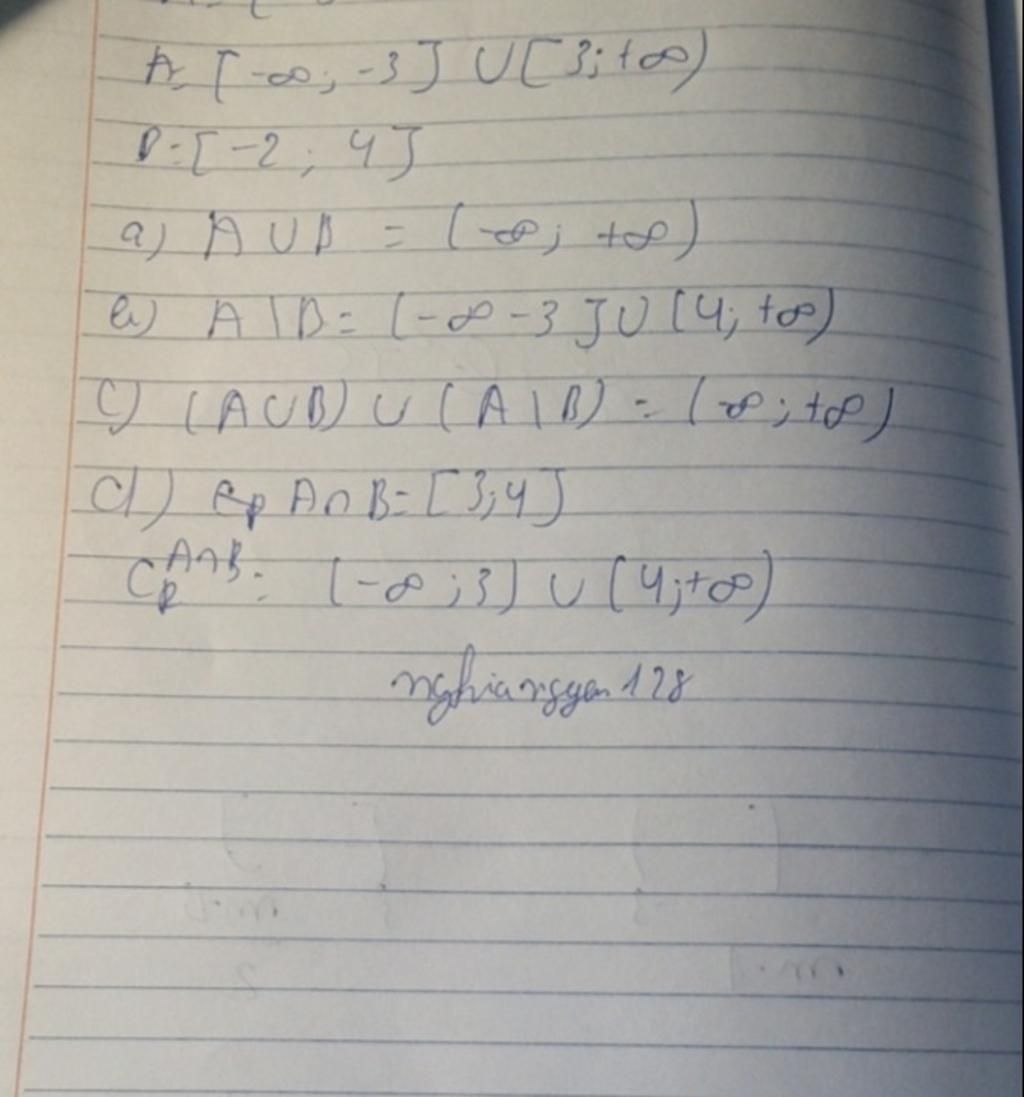 A= [-∞; -3] ∪ [3; +∞)
B=[-2; 4]
a) A ∪ B = (-∞; +∞)
b) A \ B = (-∞ -3] ∪ (4; +∞)
c) (A ∪ B) ∪ (A \ B) = (-∞; +∞)
d) A ∩ B = [3;4]
C_R^{A∩B} = (-∞; 3) ∪ (4; +∞)
nghianguyen128